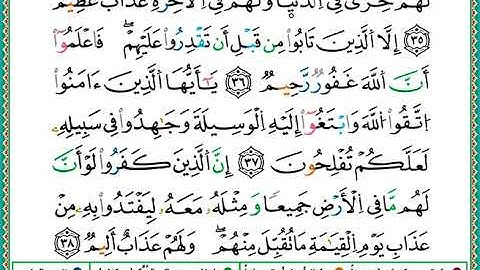 لَهُمْ خِزْىٌ فِى ٱلدُّنْيَا وَلَهُمْ فِى ٱلْأَخِرَةِ عَذَابٌ عَظِيمٌ
٣٥ إِلَّا ٱلَّذِينَ تَابُوا۟ مِن قَبْلِ أَن تَقْدِرُوا۟ عَلَيْهِمْ ۖ فَٱعْلَمُوٓا۟
أَنَّ ٱللَّهَ غَفُورٌ رَّحِيمٌ ٣٦ يَـٰٓأَيُّهَا ٱلَّذِينَ ءَامَنُوا۟
ٱتَّقُوا۟ ٱللَّهَ وَٱبْتَغُوٓا۟ إِلَيْهِ ٱلْوَسِيلَةَ وَجَـٰهِدُوا۟ فِى سَبِيلِهِۦ
لَعَلَّكُمْ تُفْلِحُونَ ٣٧ إِنَّ ٱلَّذِينَ كَفَرُوا۟ لَوْ أَنَّ
لَهُم مَّا فِى ٱلْأَرْضِ جَمِيعًا وَمِثْلَهُۥ مَعَهُۥ لِيَفْتَدُوا۟ بِهِۦ مِنْ
عَذَابِ يَوْمِ ٱلْقِيَـٰمَةِ مَا تُقُبِّلَ مِنْهُمْ ۖ وَلَهُمْ عَذَابٌ أَلِيمٌ ٣٨